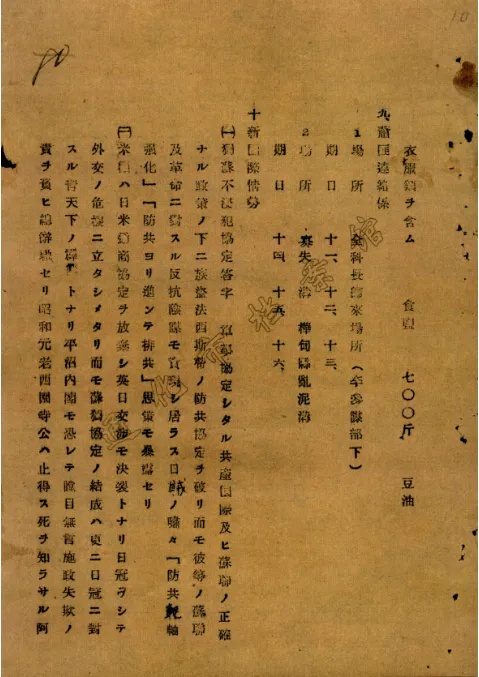 10
衣服類ヲ含ム 食鹽 七〇〇斤 豆油
九、蕭匪連絡係
1 場所 金科長歸來場所(辛參謀部下)
期日 十一、十二、十三、
2 場所 樺甸縣亂泥溝
期日 十四、十五、十六、
十、新國際情勢
(一)獨蘇不侵犯協定簽字 協定シタル共產國際及ヒ蘇聯ノ正確
ナル政策ノ下ニ族法西斯ノ防共協定ヲ破リ而モ彼等ノ蘇聯
及革命ニ對スル反抗陰謀モ實現シ居ラス日賊ノ囑々「防共軸
强化」「防共ヨリ進ンテ排共」愚策モ暴露セリ
(二)米國ハ日米通商協定ヲ放棄シ英日交涉モ決裂トナリ日冦ヲシテ
外交ノ危機ニ立タシメタリ而モ蘇獨協定ノ結成ハ更ニ日冦ニ對
スル晋天下ノ トナリ平沼內閣モ恐レテ瞠目無言施政失敗ノ
責ヲ負ヒ總辭職セリ昭和元老西園寺公ハ止得ス死ヲ知ラサル阿